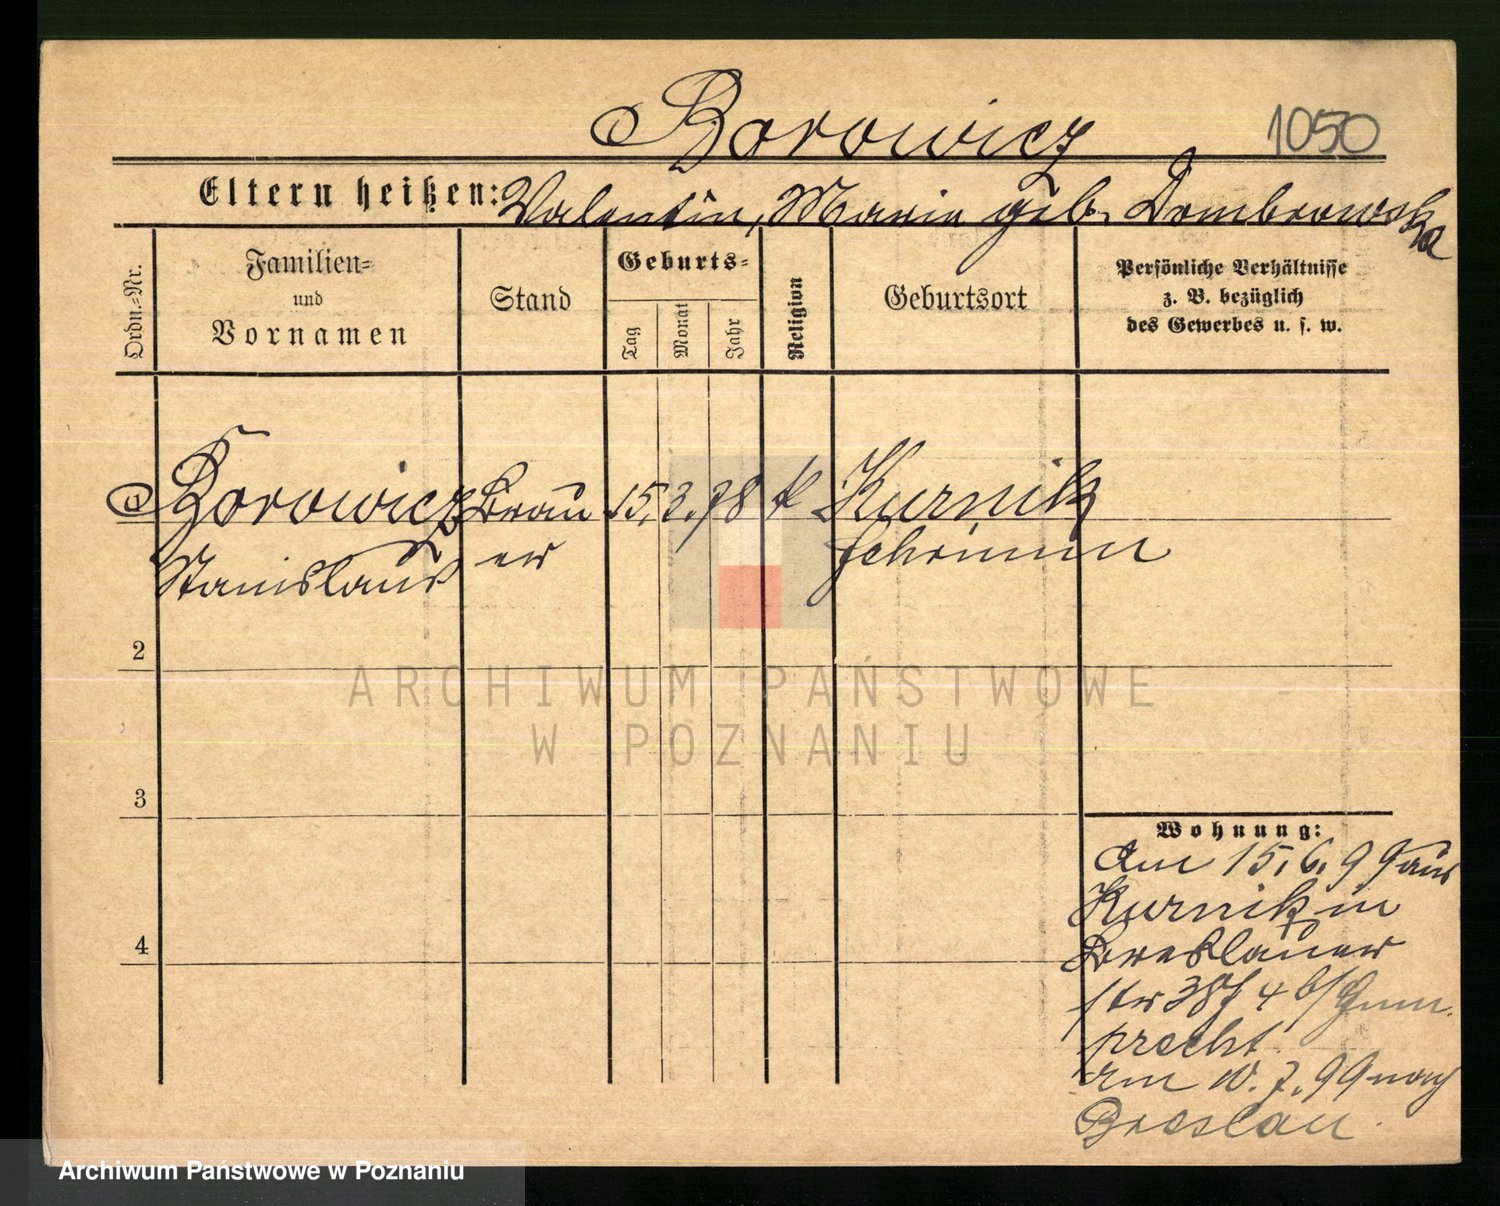 Borowicz
1050
Eltern heißen: Valentin, Marie geb. Dombrowska
Ordn.-Nr.
Familien-
und
Vornamen
Stand
Geburts-
Tag
Monat
Jahr
Religion
Geburtsort
Persönliche Verhältnisse
z. B. bezüglich
des Gewerbes u. s. w.
Borowicz Brau 15. 3. 78 k Kurnik
Stanislaus er Schrimm
2
3
4
ARCHIWUM PAŃSTWOWE
W POZNANIU
Wohnung:
Am 15. 6. 99 aus
Kurnik in
Breslauer
str 38 4 b/Gum
precht
am 10. 7. 99 nach
Breslau.
Archiwum Państwowe w Poznaniu